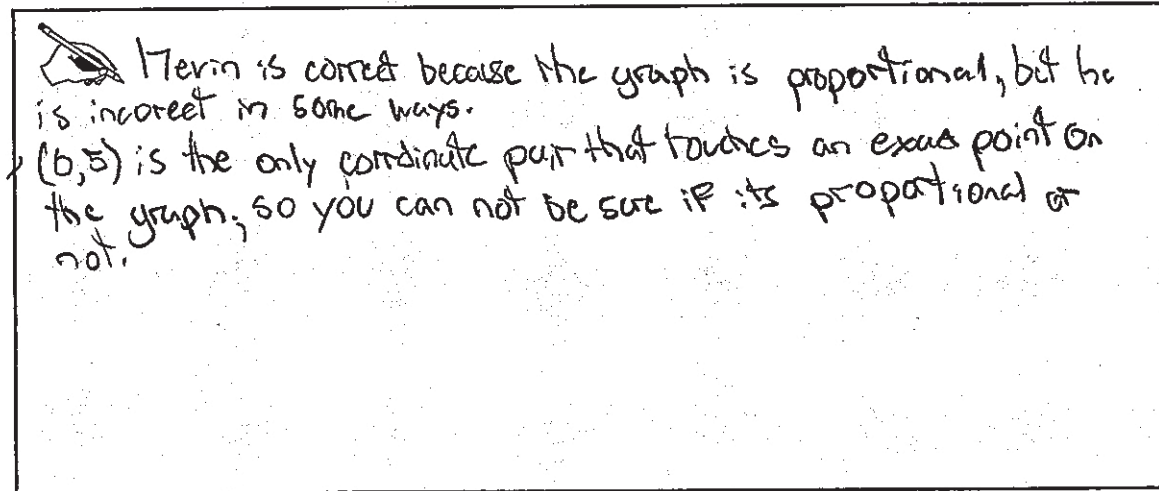 is correct because the graph is proportional, but he
is incoreet in some ways.
is the only corrdinate pair that touches an exact point on
the graph, so you can not be sure if its proportional or
not.